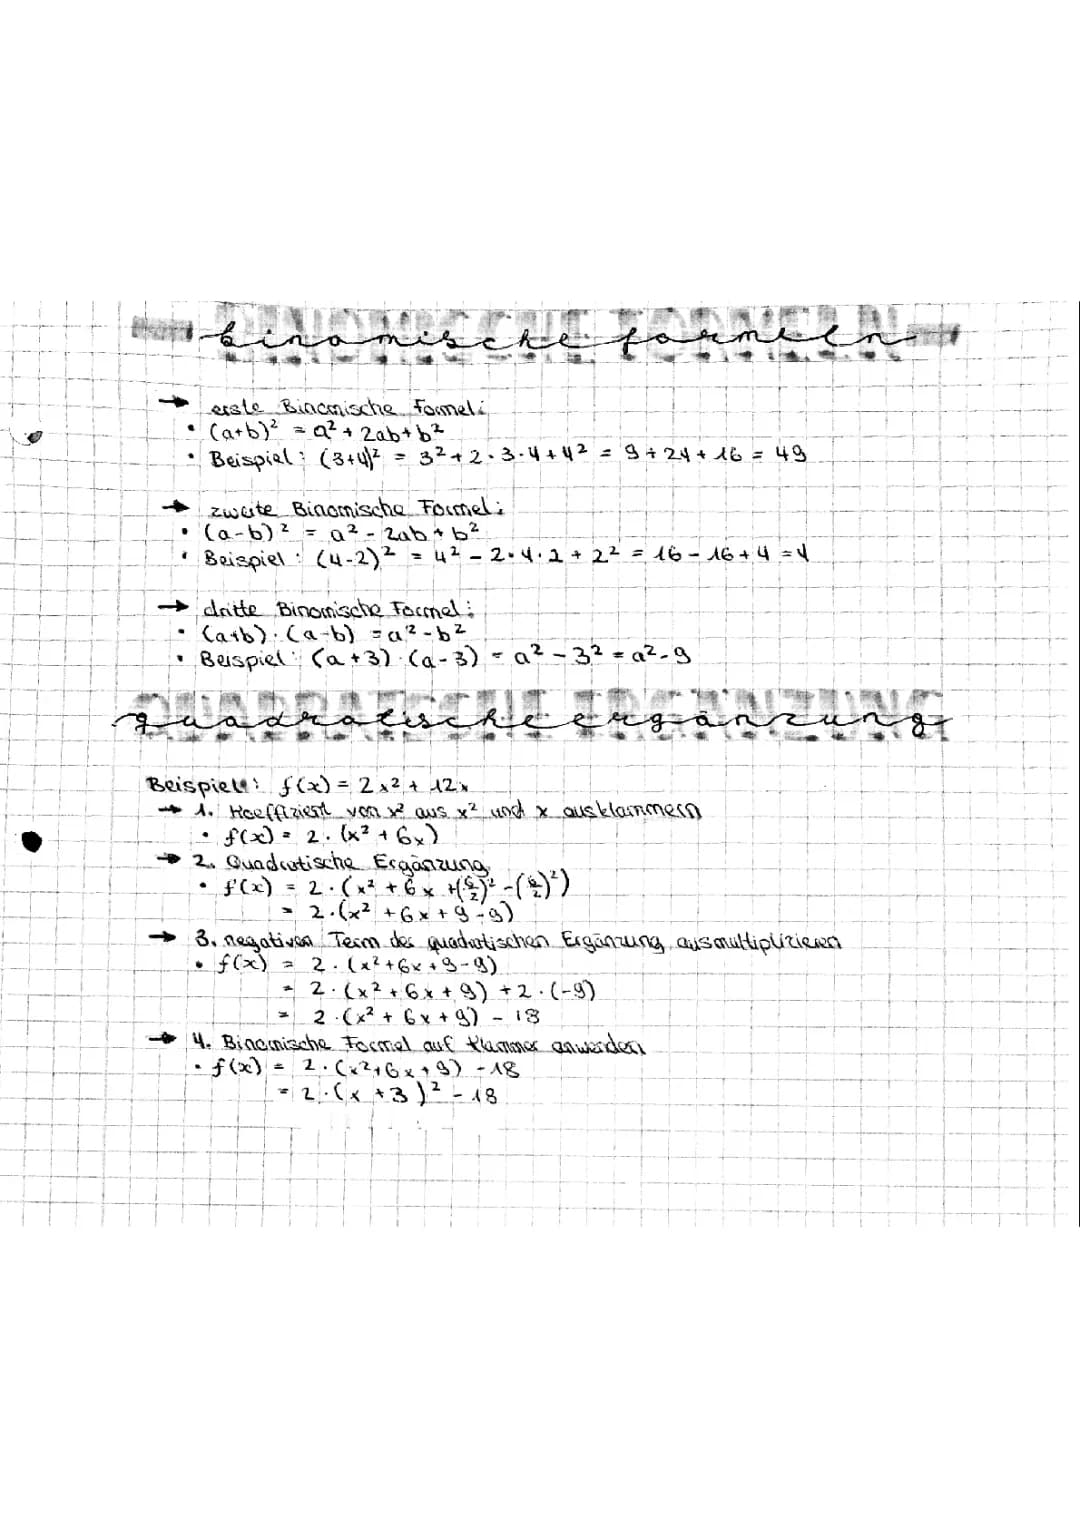 binomische formeln
→ erste Binomische Formel:
• (a+b)² = a² + 2ab + b²
• Beispiel: (3+4)² = 3² + 2·3·4 + 4² = 9 + 24 + 16 = 49
→ zweite Binomische Formel:
• (a-b)² = a² - 2ab + b²
• Beispiel: (4-2)² = 4² - 2·4·2 + 2² = 16 - 16 + 4 = 4
→ dritte Binomische Formel:
• (a+b)·(a-b) = a² - b²
• Beispiel: (a+3)·(a-3) = a² - 3² = a² - 9
quadratische ergänzung
Beispiel: f(x) = 2x² + 12x
→ 1. Koeffizient von x² aus x² und x ausklammern
• f(x) = 2·(x² + 6x)
→ 2. Quadratische Ergänzung
• f(x) = 2·(x² + 6x + (6/2)² - (6/2)²)
= 2·(x² + 6x + 9 - 9)
→ 3. negativen Term der quadratischen Ergänzung ausmultiplizieren
• f(x) = 2·(x² + 6x + 9 - 9)
= 2·(x² + 6x + 9) + 2·(-9)
= 2·(x² + 6x + 9) - 18
→ 4. Binomische Formel auf Klammer anwenden
• f(x) = 2·(x² + 6x + 9) - 18
= 2·(x + 3)² - 18